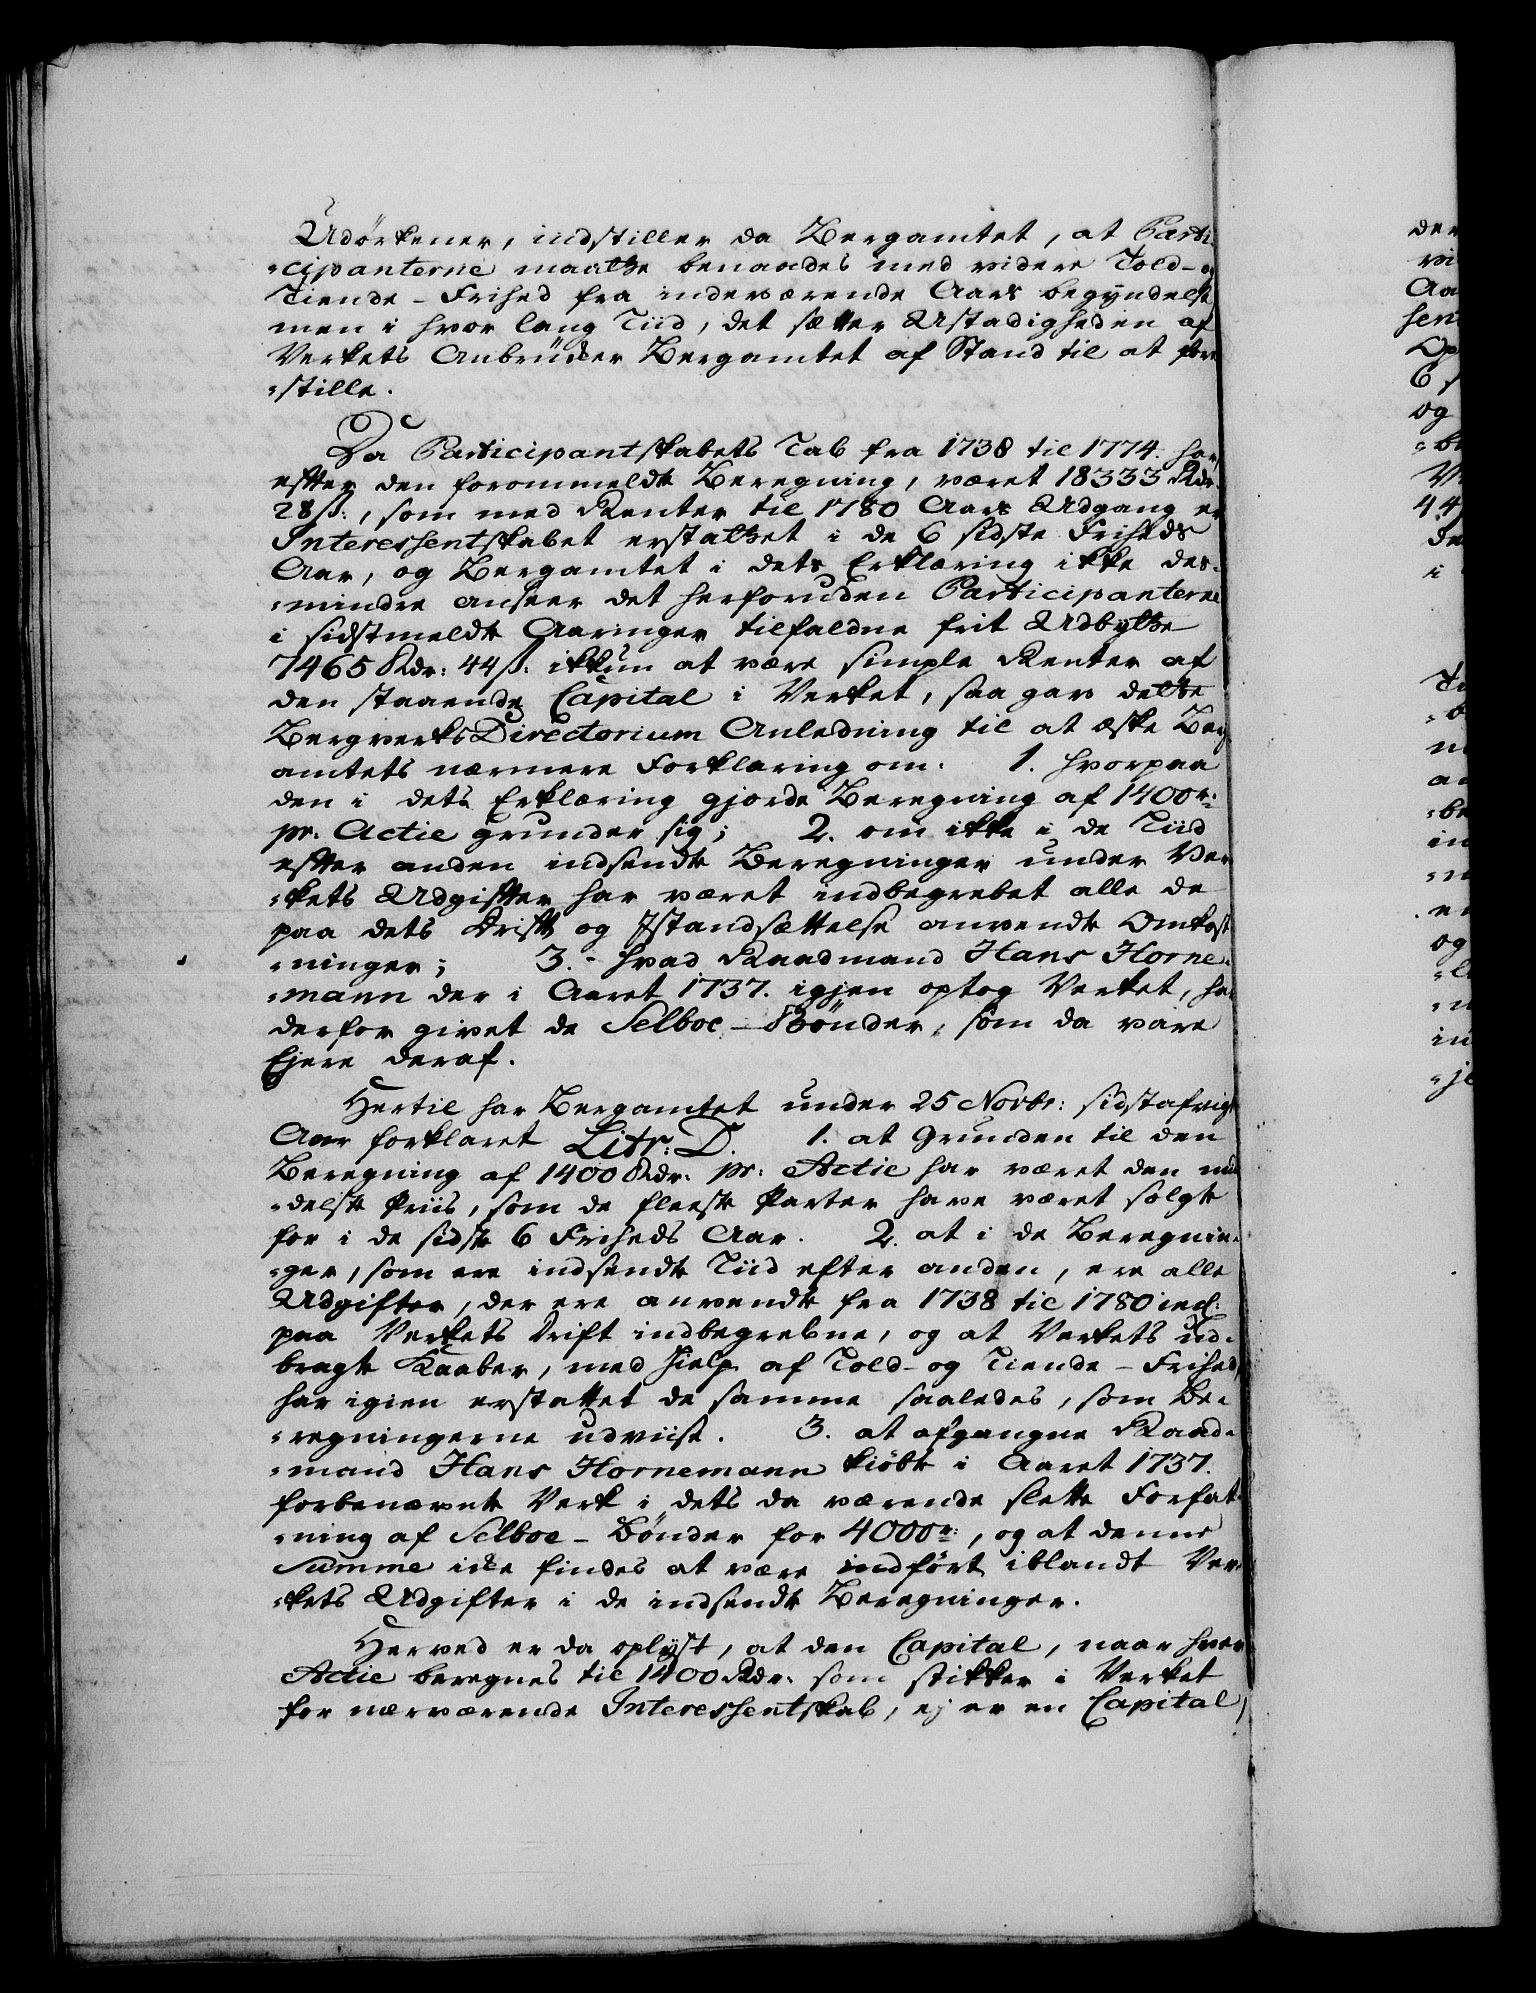 Udørkener, indstiller da Bergamtet, at Parti-
-cipanterne maatte benaades med videre Told- og
Tiende-Frihed fra indeværende Aars begyndelse
men i hvor lang Tiid, det sætter Ustadigheden af
Verkets Anbrüdder Bergamtet af Stand til at fore
-stille.
Da Participantskabets Tab fra 1738 til 1774. har,
efter den forommeldte Beregning, været 18333 Rdr.
28ß:, som med Renter til 1780 Aars Udgang er
Interessentskabet erstattet i de 6 sidste Friheds
Aar, og Bergamtet i dets Erklæring ikke des-
-mindre anseer det herforuden Participanterne
i sidstmeldte Aaringer tilfaldne frit Udbytte
7465 Rdr: 44ß: ikkun at være simple Renter af
den staaende Capital i Verket, saa gav dette
Bergverks Directorium Anledning til at æske Berg
amtets nærmere Forklaring om. 1. hvorpaa
den i dets Erklæring gjorde Beregning af 1400r:
pr. Actie grunder sig; 2. om ikke i de Tiid
efter anden indsendte Beregninger under Ver
-kets Udgifter har været indbegrebet alle de
paa dets Drift og Istandsættelse anvendte Omkost
-ninger; 3. hvad Raadmand Hans Horne-
-mann der i Aaret 1737. igjen optog Verket, har
derfor givet de Selboe-Bønder, som da vare
Ejere deraf.
Hertil har Bergamtet under 25 Novbr: sidstafvigt
Aar forklaret Litr: D. 1. at Grunden til den
Beregning af 1400 Rdr. pr: Actie har været den mid
-delste Priis, som de fleeste Parter have været solgte
for i de sidste 6 Friheds Aar. 2. at i de Beregnin-
-ger, som ere indsendte Tiid efter anden, ere alle
Udgifter, der ere anvendte fra 1738 til 1780 incl:
paa Verkets Drift indbegrebne, og at Verkets ud-
bragte Kaaber, med Hielp af Told- og Tiende-Frihed,
har igien erstattet de samme saaledes, som Be-
-regningerne udviise. 3. at afgangne Raad-
-mand Hans Hornemann kiøbte i Aaret 1737.
forbenævnte Verk i dets da værende slette Forfat-
-ning af Selboe-Bønder for 4000r:, og at denne
Summe icke findes at være indført iblandt Ver-
-kets Udgifter i de indsendte Beregninger.
Herved er da oplyst, at den Capital, naar hver
Actie beregnes til 1400 Rdr. som stikker i Verket
for nærværende Interessentskab, ej er en Capital,